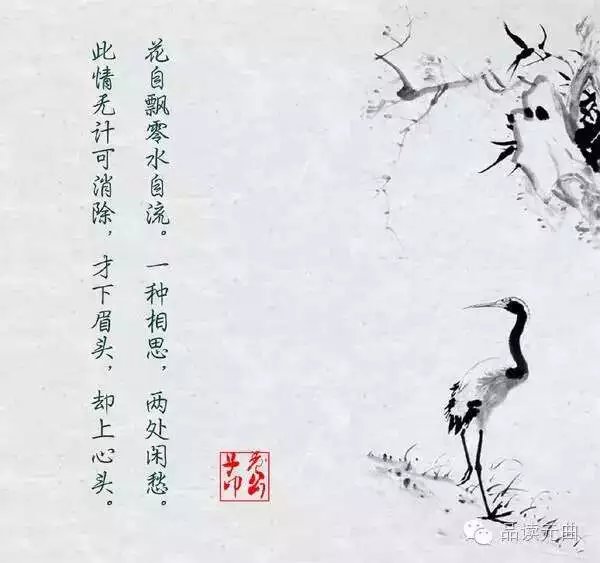 花自飘零水自流。一种相思，两处闲愁。
此情无计可消除，才下眉头，却上心头。
品读元曲